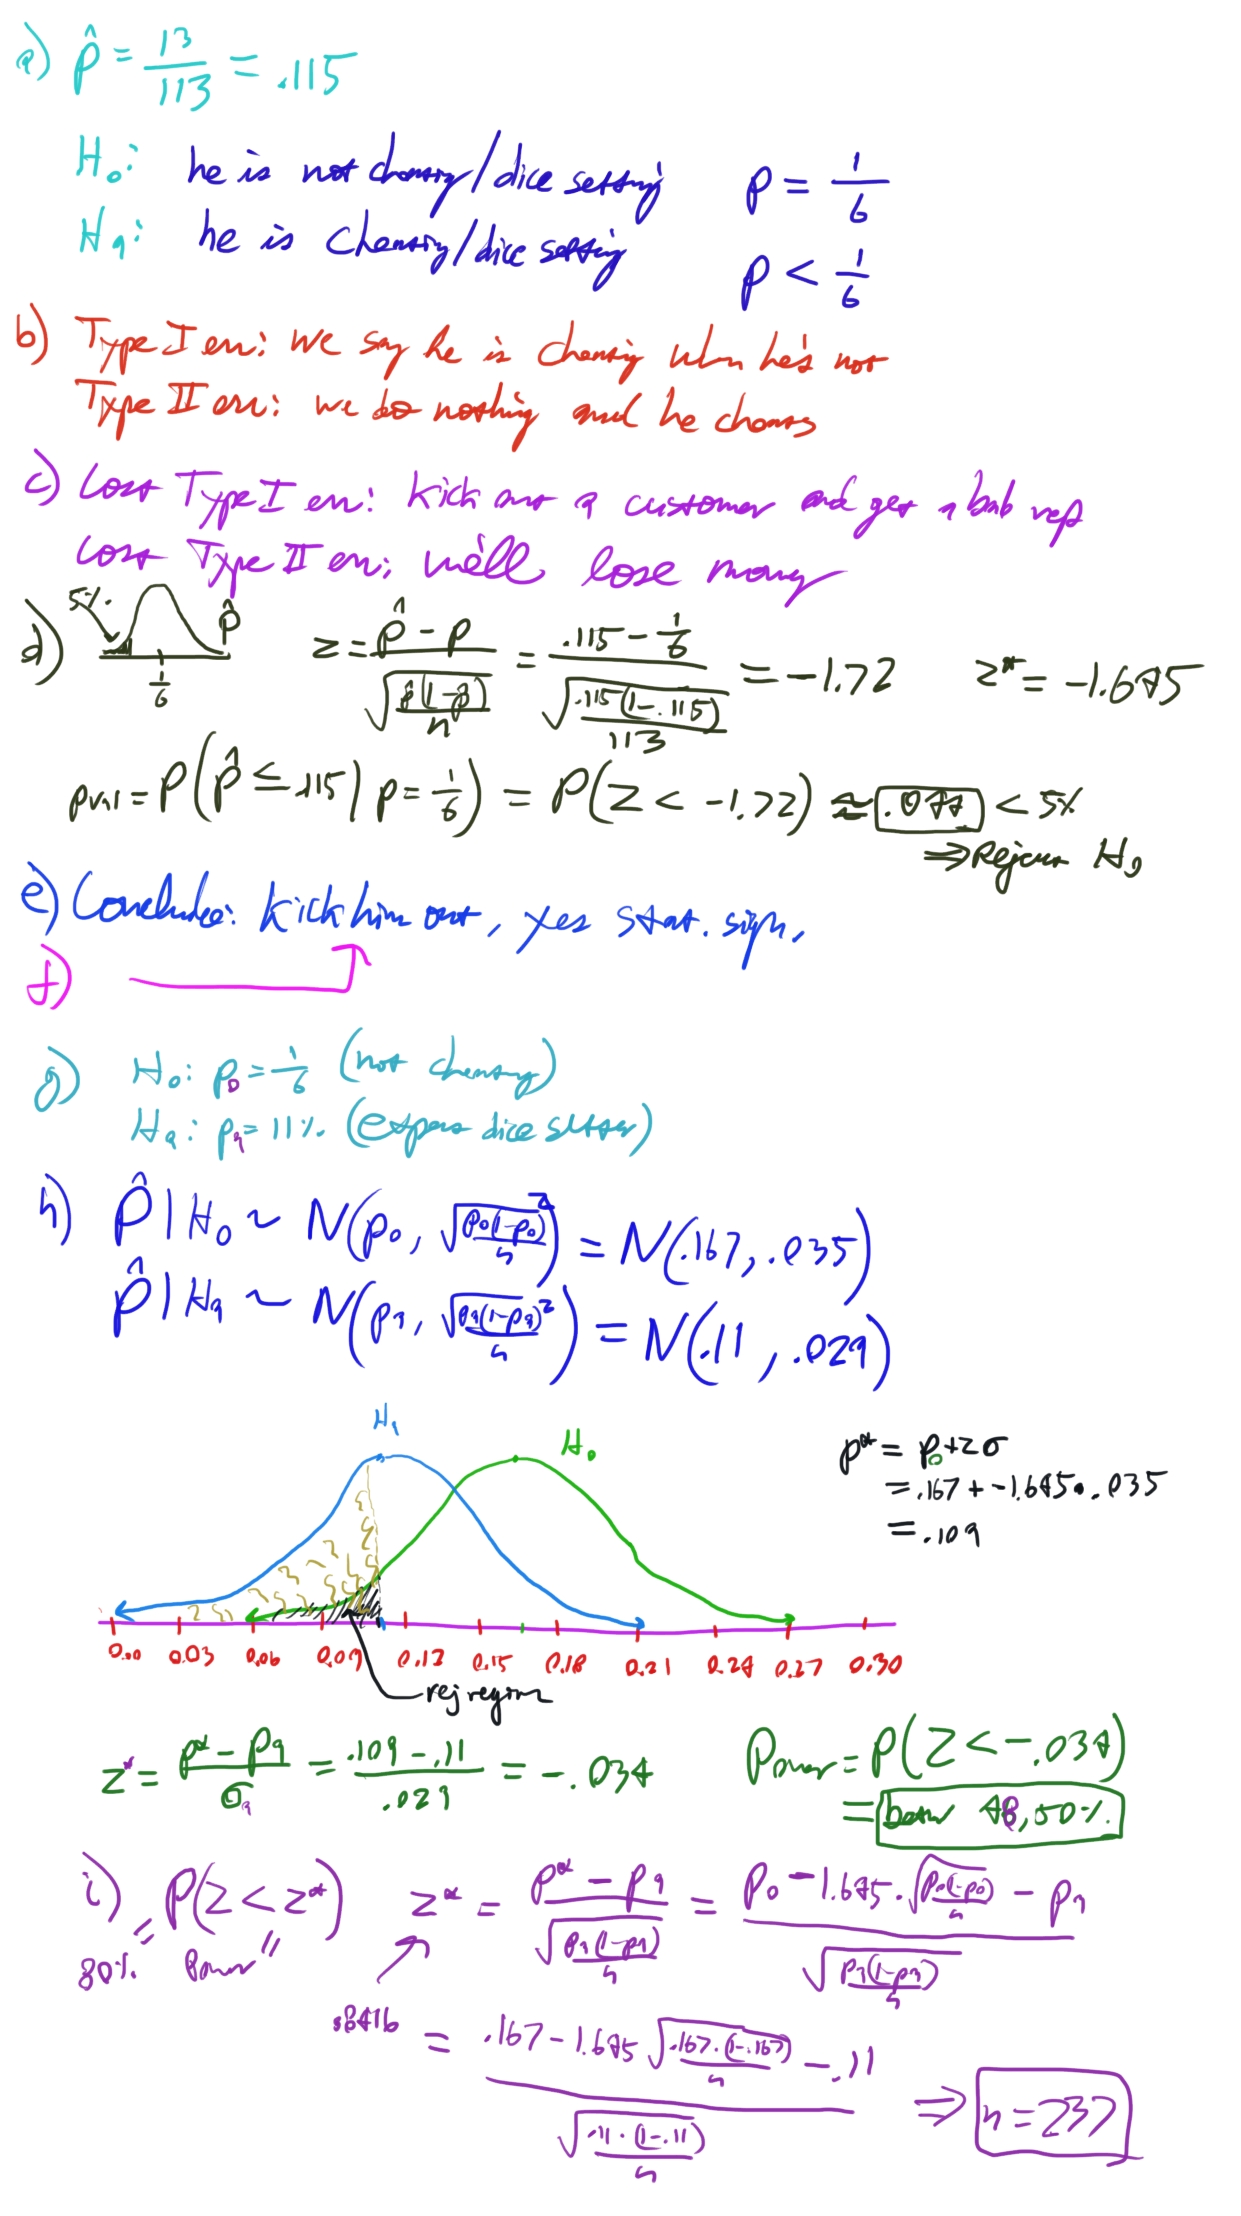 a) p̂ = 13/113 = .115
H₀: he is not cheating/dice setting p = 1/6
Hₐ: he is cheating/dice setting p < 1/6
b) Type I err: we say he is cheating when he's not
Type II err: we do nothing and he cheats
c) Cost Type I err: kick out a customer and get a bad rep
Cost Type II err: we'll lose money
d) 5% p̂ 1/6 z = (p̂ - p)/√(p̂(1-p̂)/n) = (.115 - 1/6)/√(.115(1-.115)/113) = -1.72 z* = -1.645
pval = P(p̂ ≤ .115 | p = 1/6) = P(Z < -1.72) ≈ .044 < 5%
⇒ Reject H₀
e) Conclude: kick him out, yes stat. sign.
f)
g) H₀: p₀ = 1/6 (not cheating)
Hₐ: pₐ = 11% (expert dice setter)
h) P̂ | H₀ ~ N(p₀, √(p₀(1-p₀)/n)²) = N(.167, .035)
P̂ | Hₐ ~ N(pₐ, √(pₐ(1-pₐ)/n)²) = N(.11, .029)
Hₐ H₀
p* = p₀ + zσ
= .167 + -1.645 · .035
= .109
0.00 0.03 0.06 0.09 0.12 0.15 0.18 0.21 0.24 0.27 0.30
rej region
z* = (p* - pₐ)/σₐ = (.109 - .11)/.029 = -.034 Power = P(Z < -.034)
= betw 48, 50%.
i) P(Z < z*) z* = (p* - pₐ)/√(pₐ(1-pₐ)/n) = (p₀ - 1.645 · √(p₀(1-p₀)/n) - pₐ)/√(pₐ(1-pₐ)/n)
80% = "Power"
.8416 = (.167 - 1.645 √(.167 · (1-.167)/n) - .11)/√(.11 · (1-.11)/n) ⇒ n = 237